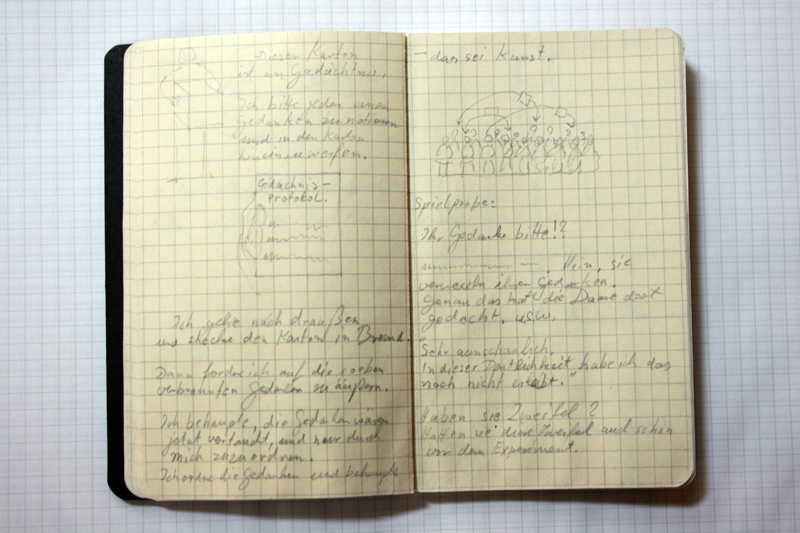 Dieser Karton
ist ein Gedächtnis.
Ich bitte jeden einen
Gedanken zu notieren
und in den Karton
hineinzuwerfen.
Gedächtnis-
Protokol.
Ich gehe nach draußen
und stecke den Karton in Brand.
Dann fordre ich auf die soeben
verbrannten Gedanken zu äußern.
Ich behaupte, die Gedanken wären
jetzt vertauscht, und nur durch
mich zuzuordnen.
Ich ordne die Gedanken und behaupte
– das sei Kunst.
Spielprobe:
Ihr Gedanke bitte!?
Nein, sie
verwechseln ihren Gedanken.
Genau das hat die Dame dort
gedacht, usw.
"Sehr anschaulich.
In dieser Deutlichkeit habe ich das
noch nicht erlebt."
Haben sie Zweifel?
Hatten sie diese Zweifel auch schon
vor dem Experiment.